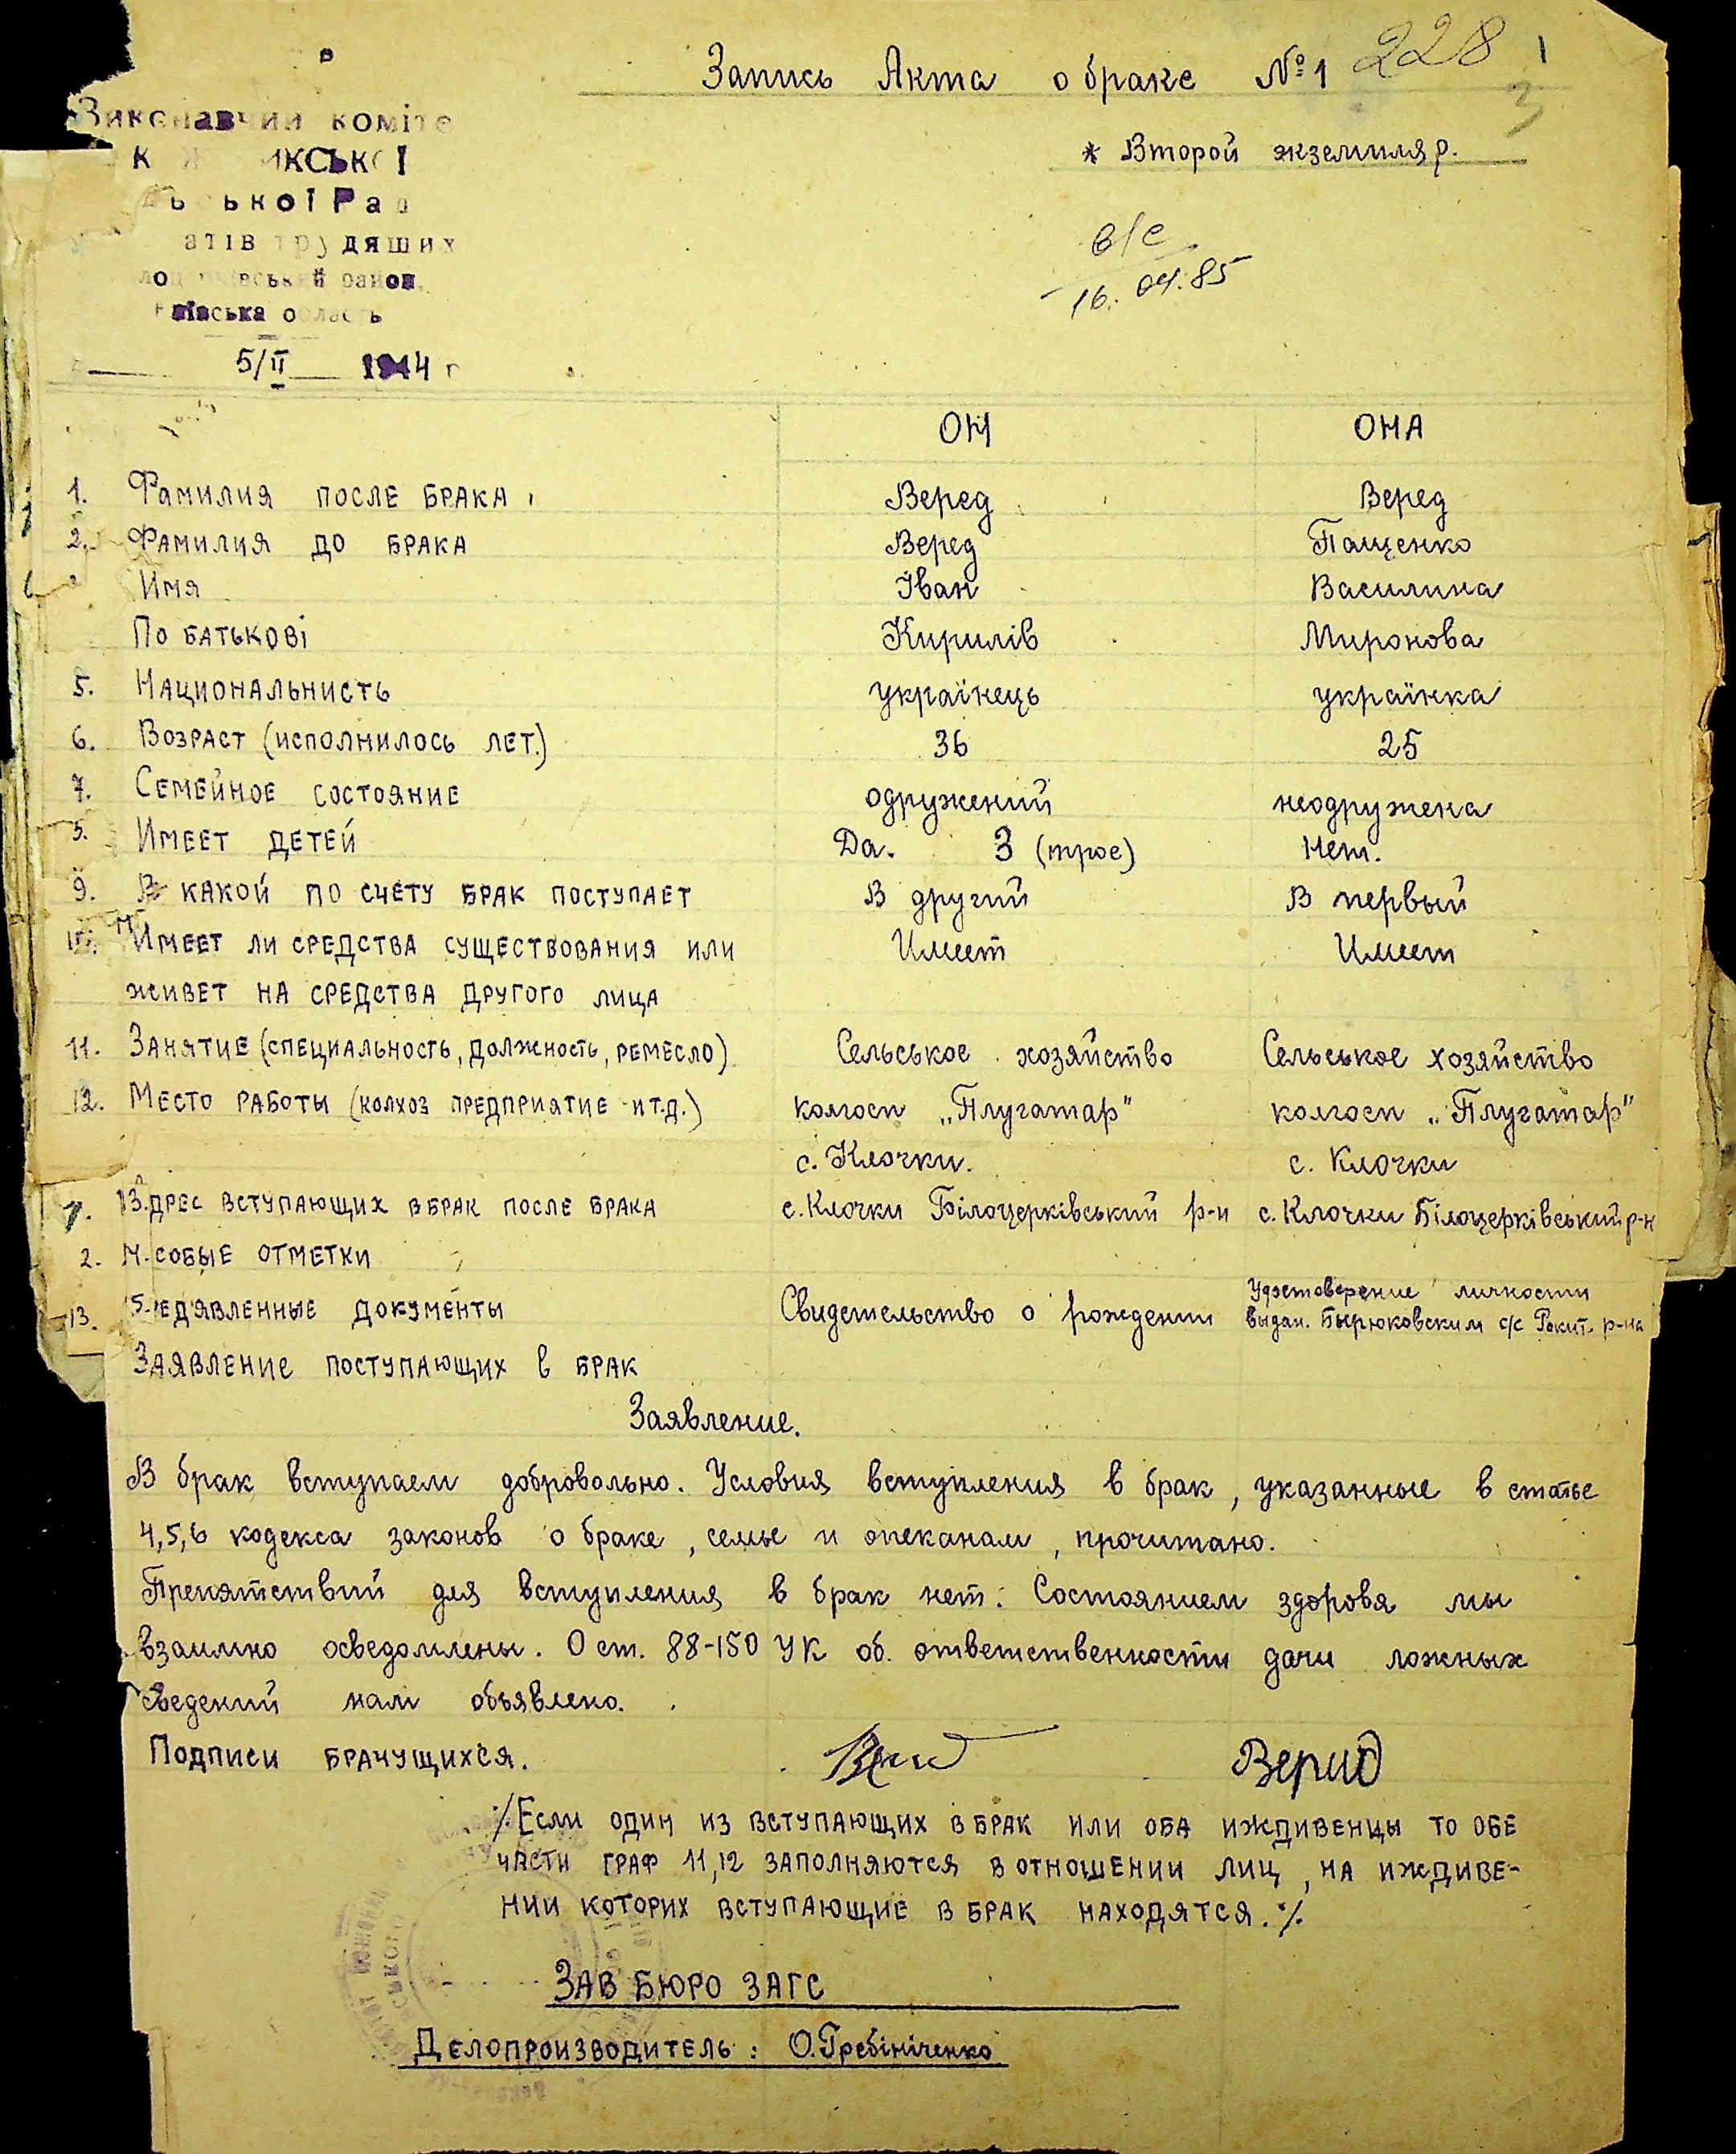 Запись Акта о браке №1 228
* Второй экземпляр.
Виконавчий коміте
трудящих
район
Київська область
5/II 1944 г
16.04.85
ОН ОНА
1. Фамилия после брака Веред Веред
2. Фамилия до брака Веред Пащенко
Имя Іван Василина
По батькові Кирилів Миронова
5. Национальнисть українець українка
6. Возраст (исполнилось лет.) 36 25
7. Семейное состояние одружений неодружена
Имеет детей Да. 3 (трое) Нет.
9. В какой по счету брак поступает В другий В первый
Имеет ли средства существования или Имеет Имеет
живет на средства другого лица
11. Занятие (специальность, должность, ремесло) Сельськое хозяйство Сельськое хозяйство
12. Место работы (колхоз предприятие и т.д.) колгосп „Плугатар" колгосп „Плугатар"
с. Клочки. с. Клочки
13. дрес вступающих в брак после брака с. Клочки Білоцерківський р-н с. Клочки Білоцерківський р-н
2. собые отметки
13. едявленные документы Свидетельство о рождении Удостоверение личности
выдан. Бырюковским с/с Рокит. р-на
Заявление поступающих в брак
Заявление.
В брак вступаем добровольно. Условия вступления в брак, указанные в статье
4,5,6 кодекса законов о браке, семье и опеканам, прочитано.
Препятствий для вступления в брак нет: Состоянием здоровя мы
взаимно осведомлены. О ст. 88-150 УК об. ответственности дачи ложных
сведений нам объявлено.
Подписи брачущихся. Верид
% Если один из вступающих в брак или оба иждивенцы то обе
части граф 11,12 заполняются в отношении лиц, на иждиве-
нии которих вступающие в брак находятся. %
Зав бюро ЗАГС
Делопроизводитель: О. Гребініченко